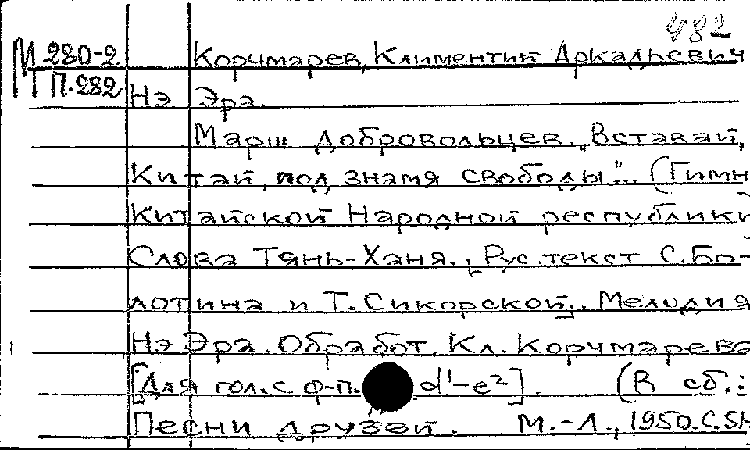 482
М 280-2 Корчмарев, Климентий Аркадьевич
П.282
Нэ Эрг.
Марш добровольцев. "Вставай,
Китай, под знамя свободы"... (Гимн
Китайской Народной республики)
Слова Тянь-Ханя., Рус. текст С. Бо-
лотина и Т. Сикорской. Мелодия
Нэ Эра. Обработ. Кл. Корчмарева
[Для гол. с ф-п. d¹-e²]. (В сб.:
Песни друзей. М.-Л., 1950. С.